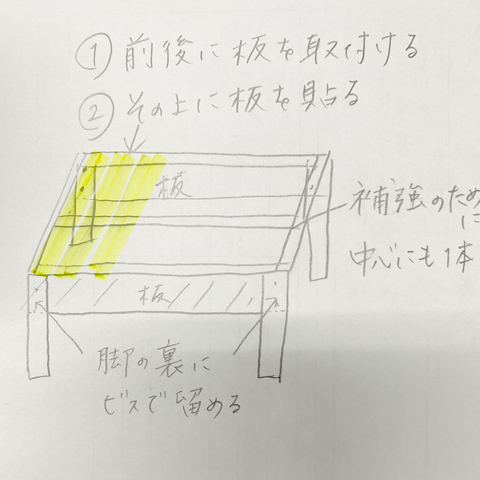 ① 前後に板を取付ける
② その上に板を貼る
板
補強のため
に
中心にも1本
板
脚の裏に
ビスで留める